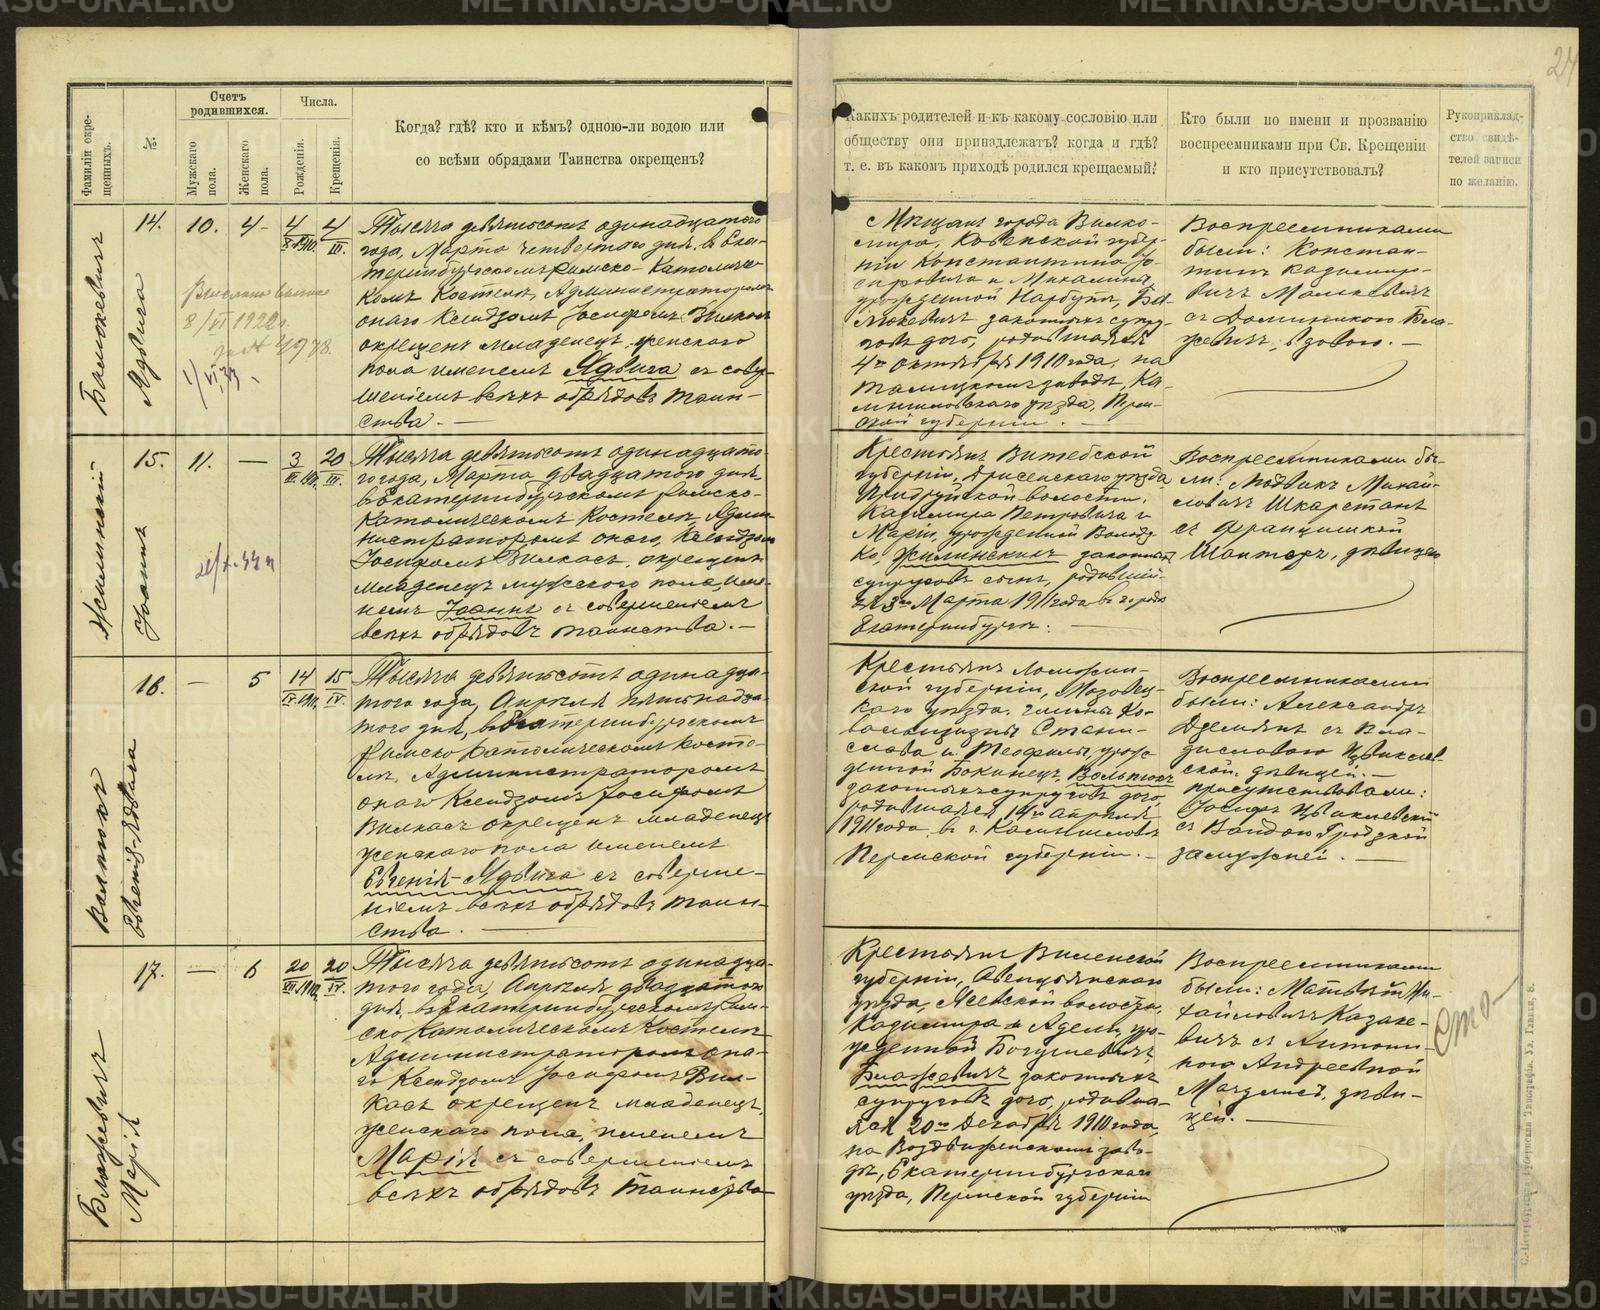 24
Фамиліи окрещенныхъ.
№.
Счетъ родившихся.
Мужскаго пола.
Женскаго пола.
Числа.
Рожденія.
Крещенія.
Когда? гдѣ? кто и кѣмъ? одною-ли водою или
со всѣми обрядами Таинства окрещенъ?
Какихъ родителей и къ какому сословію или
обществу они принадлежатъ? когда и гдѣ?
т. е. въ какомъ приходѣ родился крещаемый?
Кто были по имени и прозванію
воспреемниками при Св. Крещеніи
и кто присутствовалъ?
Рукоприклад-
ство свидѣ-
телей записи
по желанію.
Ядвига
14.
10.
4
4
X 1910.
4
III.
Тысяча девятьсотъ одинадцатого
года, Марта четвертого дня, въ Ека-
теринбургскомъ Римско-Католичес-
комъ Костелѣ, Администраторомъ
онаго Ксендзомъ Іосифомъ Вилкасъ
окрещенъ младенецъ женского
пола именемъ Ядвига съ совер-
шеніемъ всѣхъ обрядовъ таин-
ства. —
Мѣщанъ города Вилко-
мира, Ковенской губер-
ніи Константина Іо-
сифовича и Михалины,
урожденной Нарбутъ, Ба-
законныхъ супру-
говъ дочь, родившаяся
4го октября 1910 года, на
Талицкомъ заводѣ, Ка-
мышловскаго уѣзда, Перм-
ской губерніи. —
Воспреемниками
были: Констан-
тинъ Казимиро-
вичъ Малкевичъ
съ Доминикою
вдовою. —
8/VI 1922г.
Жилинскій
Іоаннъ
15.
11.
—
3
III 1911.
20
III.
Тысяча девятьсотъ одинадцато-
го года, Марта двадцатого дня,
въ Екатеринбургскомъ Римско-
Католическомъ Костелѣ, Адми-
нистраторомъ онаго, Ксендзомъ
Іосифомъ Вилкасъ, окрещенъ
младенецъ мужского пола, име-
немъ Іоаннъ съ совершеніемъ
всѣхъ обрядовъ таинства. —
Крестьянъ Витебской
губерніи, Дрисенскаго уѣзда
Придруйской волости,
Казимира Петровича и
Маріи, урожденной Володь-
ко, Жилинскихъ законныхъ
супруговъ сынъ, родившій-
ся 3го Марта 1911 года въ городѣ
Екатеринбургѣ. —
Воспреемниками бы-
ли: Людвикъ Михай-
ловичъ Шкарстанъ
съ Францишкой
Шантеръ, дѣвицею
Валпюкъ
Евгенія-Ядвига
16.
—
5
14
IV 1911.
15
IV.
Тысяча девятьсотъ одинадца-
того года, Апрѣля пятьнадца-
того дня, въ Екатеринбургскомъ
Римско Католическомъ Косте-
лѣ, Администраторомъ
онаго Ксендзомъ Іосифомъ
Вилкасъ окрещенъ младенецъ
женскаго пола именемъ
Евгенія-Ядвига съ соверше-
ніемъ всѣхъ обрядовъ таин-
ства. —
Крестьянъ Ломжин-
ской губерніи, Мазовец-
каго уѣзда, гмины Ко-
Стани-
слава и Теофили урож-
денной
законныхъ супруговъ дочь,
родившаяся 14го Апрѣля
1911 года, въ г. Камышловѣ
Пермской губерніи. —
Воспреемниками
были: Александръ
съ Вла-
диславою
дѣвицей. —
присутствовали:
Іосифъ
съ Вандою Гродзкой
замужней. —
Блажевичъ
Марія
17.
—
6
20
XII 1910.
20
IV.
Тысяча девятьсотъ одинадца-
того года, Апрѣля двадцатого
дня, въ Екатеринбургскомъ Рим-
ско Католическомъ Костелѣ
Администраторомъ она-
го Ксендзомъ Іосифомъ Вил-
касъ окрещенъ младенецъ,
женскаго пола, именемъ
Марія съ совершеніемъ
всѣхъ обрядовъ таинства
Крестьянъ Виленской
губерніи, Свенцянскаго
уѣзда, Ясевской волости,
Казимира и Адели, уро-
жденной Богушевичъ,
Блажевичъ законныхъ
супруговъ дочь, родивша-
яся 20го Декабря 1910 года,
на Воздвиженскомъ заво-
дѣ, Екатеринбургскаго
уѣзда, Пермской губерніи
Воспреемниками
были: Матвѣй Ми-
хайловичъ Казаке-
вичъ съ Антони-
ною Андреевной
дѣви-
цей. —
METRIKI.GASO-URAL.RU